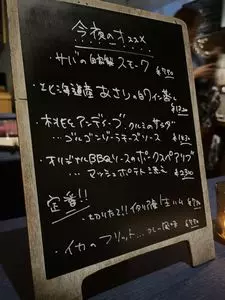 今夜のオススメ
・サバの自家製スモーク
・北海道産あさりの白ワイン蒸し
・桃とアンディーブ、クルミのサラダ
…ゴルゴンゾーラチーズソース
・オリジナルBBQソースのポークスペアリブ
…マッシュポテト添え
定番!!
・切りたて!!イタリア産生ハム
・イカのフリット…カレー風味